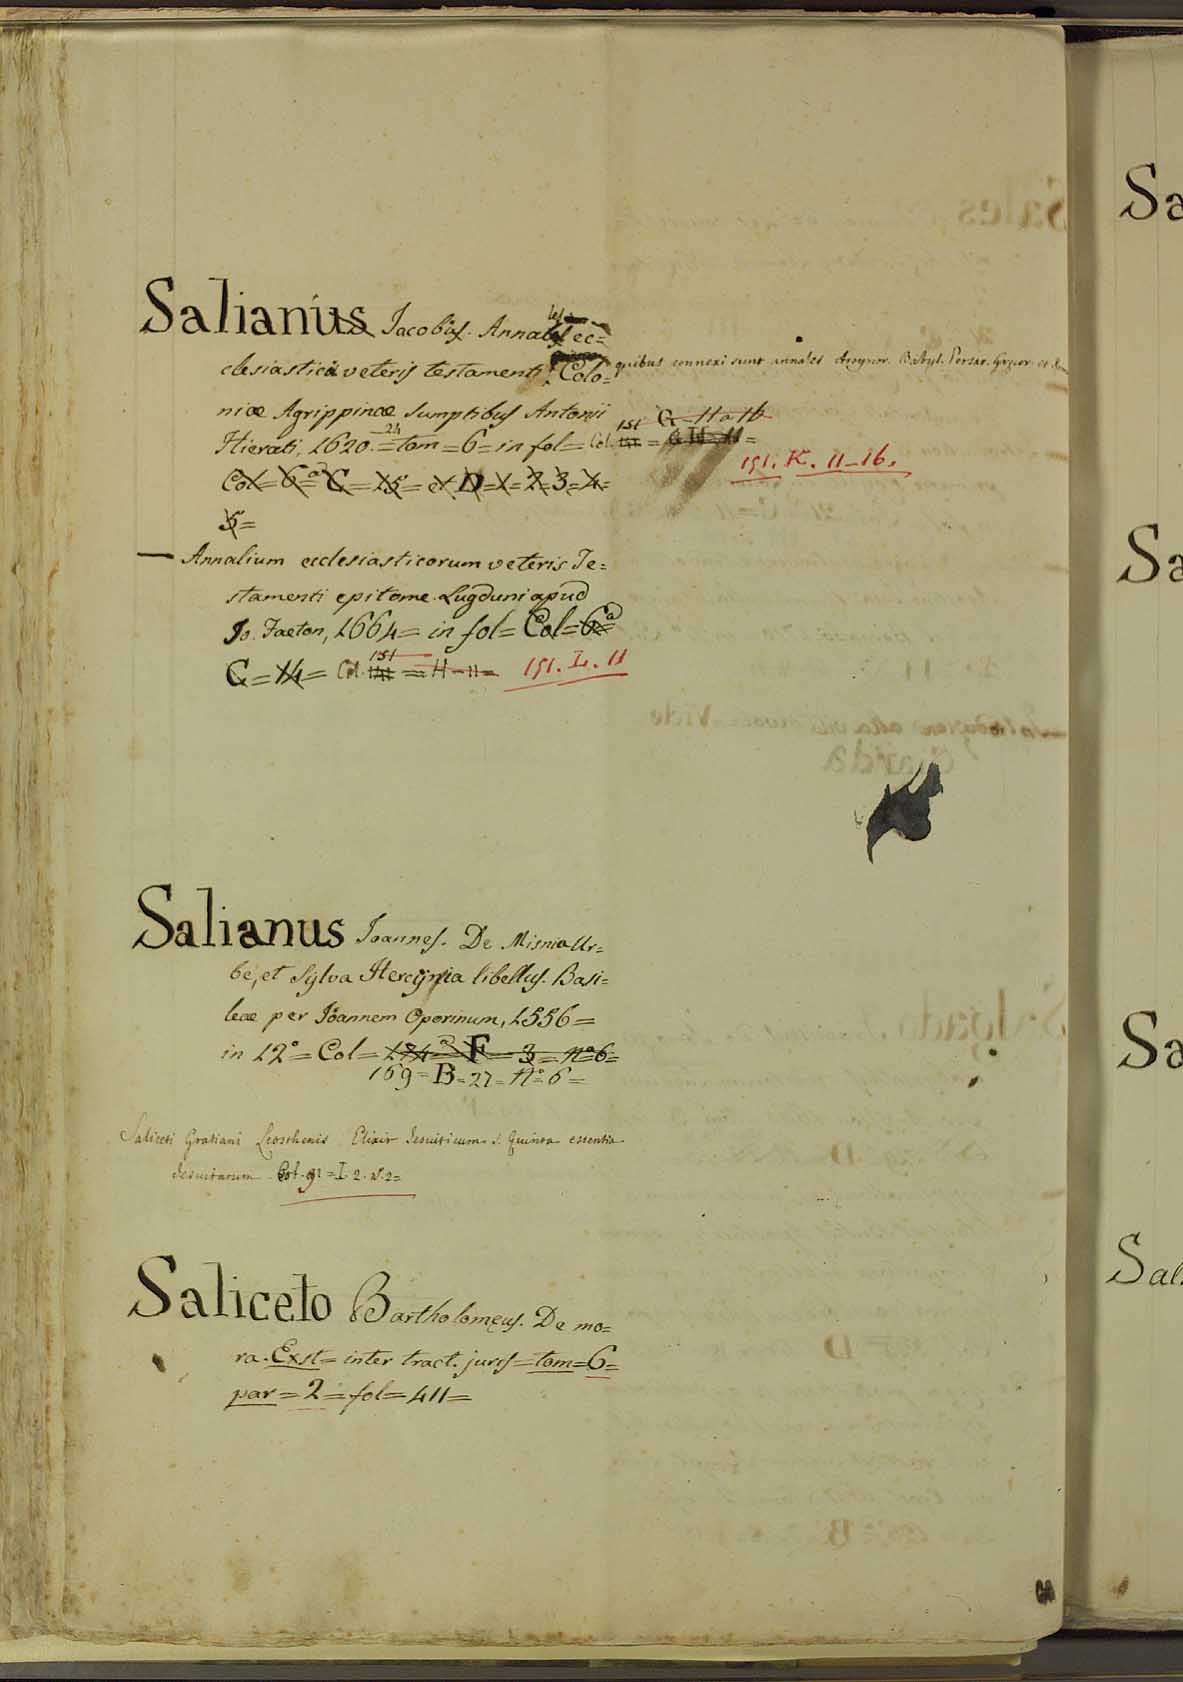 Salianus Jacobus. Annales ec=
clesiastici veteris testamenti, Colo= quibus connexi sunt annales Assyrior. Babyl. Persar. Græcor. et
niæ Agrippinæ sumptibus Antonii
Hierati, 1620.=24 tom=6= in fol= Col. 151 = G-11 a 16
191. K. 11-16.
Col= 6ª= C= 15= et D=1=2=3=4=
5=
— Annalium ecclesiasticorum veteris Te=
stamenti epitome. Lugduni apud
Jo. Faeton, 1664= in fol= Col=6ª=
C=14= Col. 151 = H-11= 191. L. 11
Salianus Joannes. De Misnia Ur=
be, et Sylva Hercynia libellus. Basi=
leæ per Joannem Oporinum, 1556=
in 12º= Col=174= F=3= nº 6=
169= B=27= nº 6=
Saliceti Gratiani Leosthenis Elixir Jesuiticum s. Quinta essentia
Jesuitarum. Col. 91= I. 2. n. 2=
Saliceto Bartholomeus. De mo=
ra. Exst= inter tract. juris= tom=6=
par=2= fol=411=
Sa
Sa
Sa
Sal